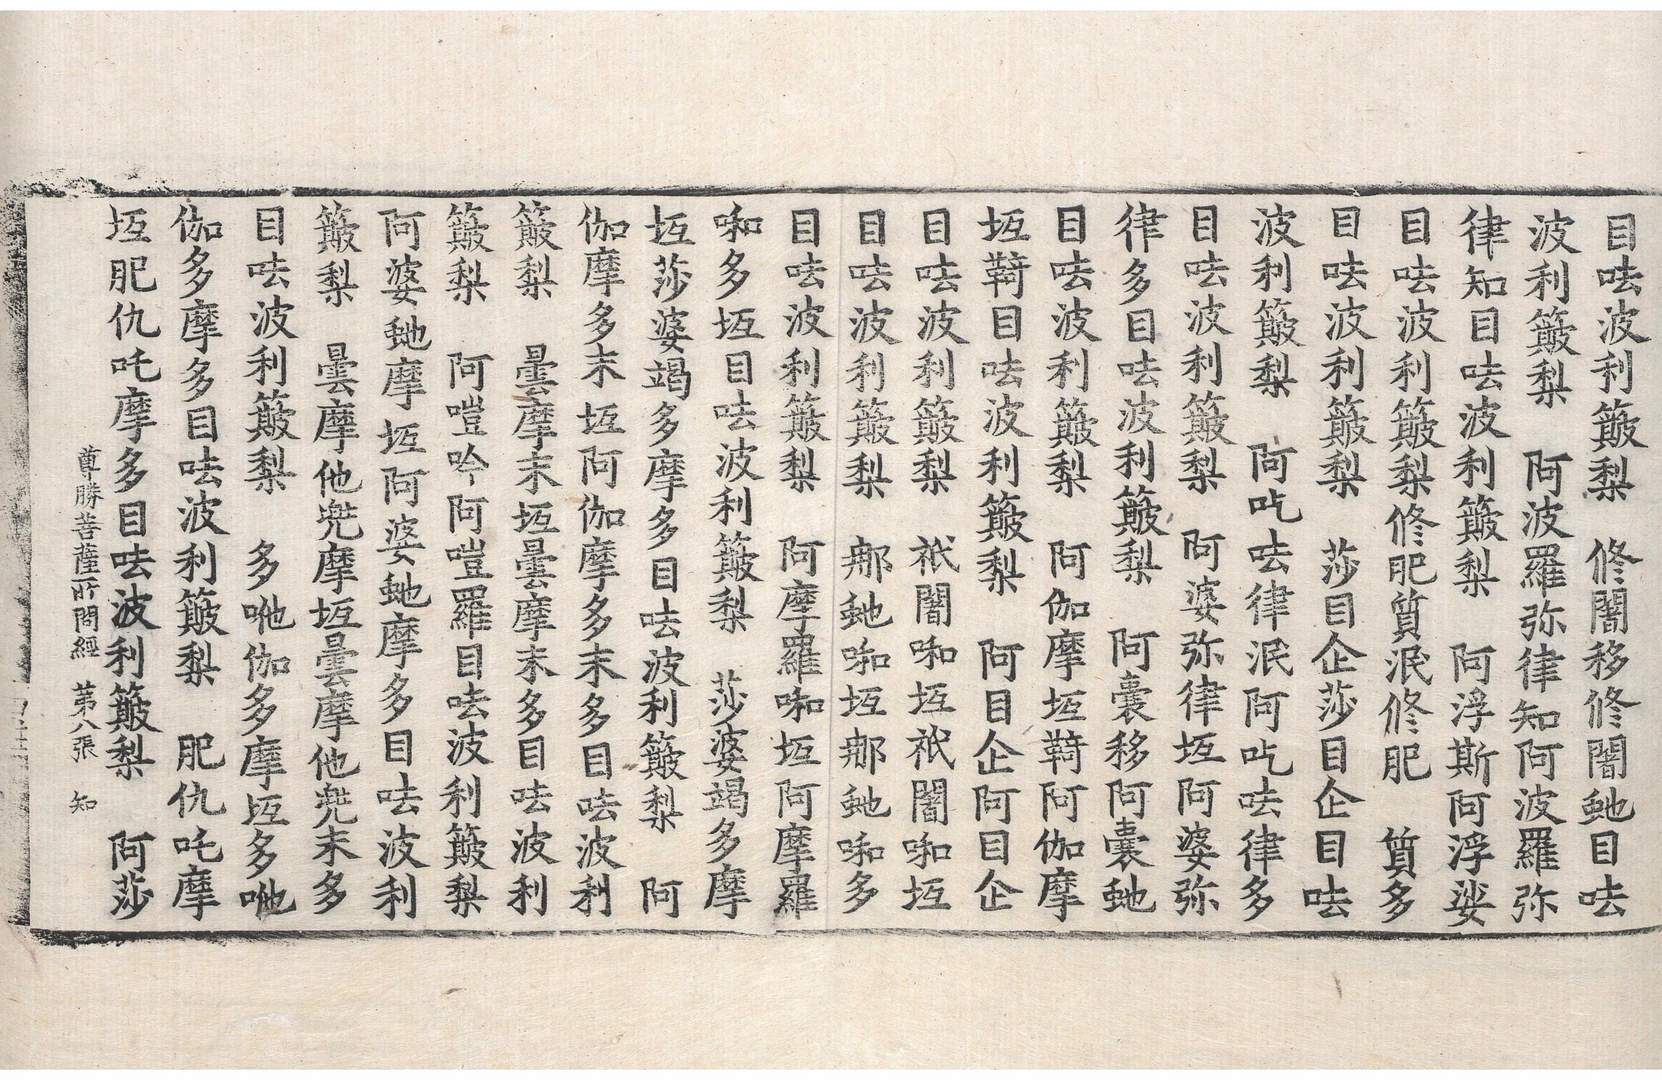 目呿波利簸梨　修闍移修闍虵目呿
波利簸梨　阿波羅弥律知阿波羅弥
律知目呿波利簸梨　阿浮斯阿浮娑
目呿波利簸梨修肥質泯修肥　質多
目呿波利簸梨　莎目企莎目企目呿
波利簸梨　阿吃呿律泯阿吃呿律多
目呿波利簸梨　阿婆弥律坘阿婆弥
律多目呿波利簸梨　阿嚢移阿嚢虵
目呿波利簸梨　阿伽摩坘鞞阿伽摩
坘鞞目呿波利簸梨　阿目企阿目企
目呿波利簸梨　祇闍啝坘祇闍啝坘
目呿波利簸梨　那虵啝坘那虵啝多
目呿波利簸梨　阿摩羅啝坘阿摩羅
啝多坘目呿波利簸梨　莎婆竭多摩
坘莎婆竭多摩多目呿波利簸梨　阿
伽摩多末坘阿伽摩多末多目呿波利
簸梨　曇摩末坘曇摩末多目呿波利
簸梨　阿嘊吟阿嘊羅目呿波利簸梨
阿婆虵摩坘阿婆虵摩多目呿波利
簸梨　曇摩他兜摩坘曇摩他兜末多
目呿波利簸梨　多吔伽多摩坘多吔
伽多摩多目呿波利簸梨　肥仇吒摩
坘肥仇吒摩多目呿波利簸梨　阿莎
尊勝菩薩所問經　第八張　知